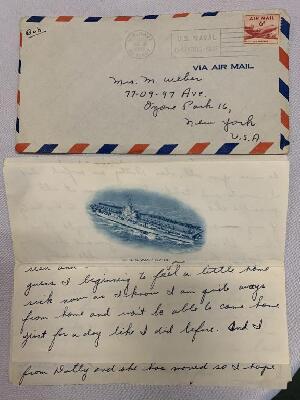 Bob.
U.S. NAVAL
AIR MAIL
6¢
VIA AIR MAIL
Mrs. M. Weber
77-09-97 Ave.
Ozone Park 16,
New York
U.S.A
guess I beginning to feel a little home
sick now as I know I am quite aways
from home and wont be able to come home
just for a day like I did before. And I
from Dolly and she has moved so I hope